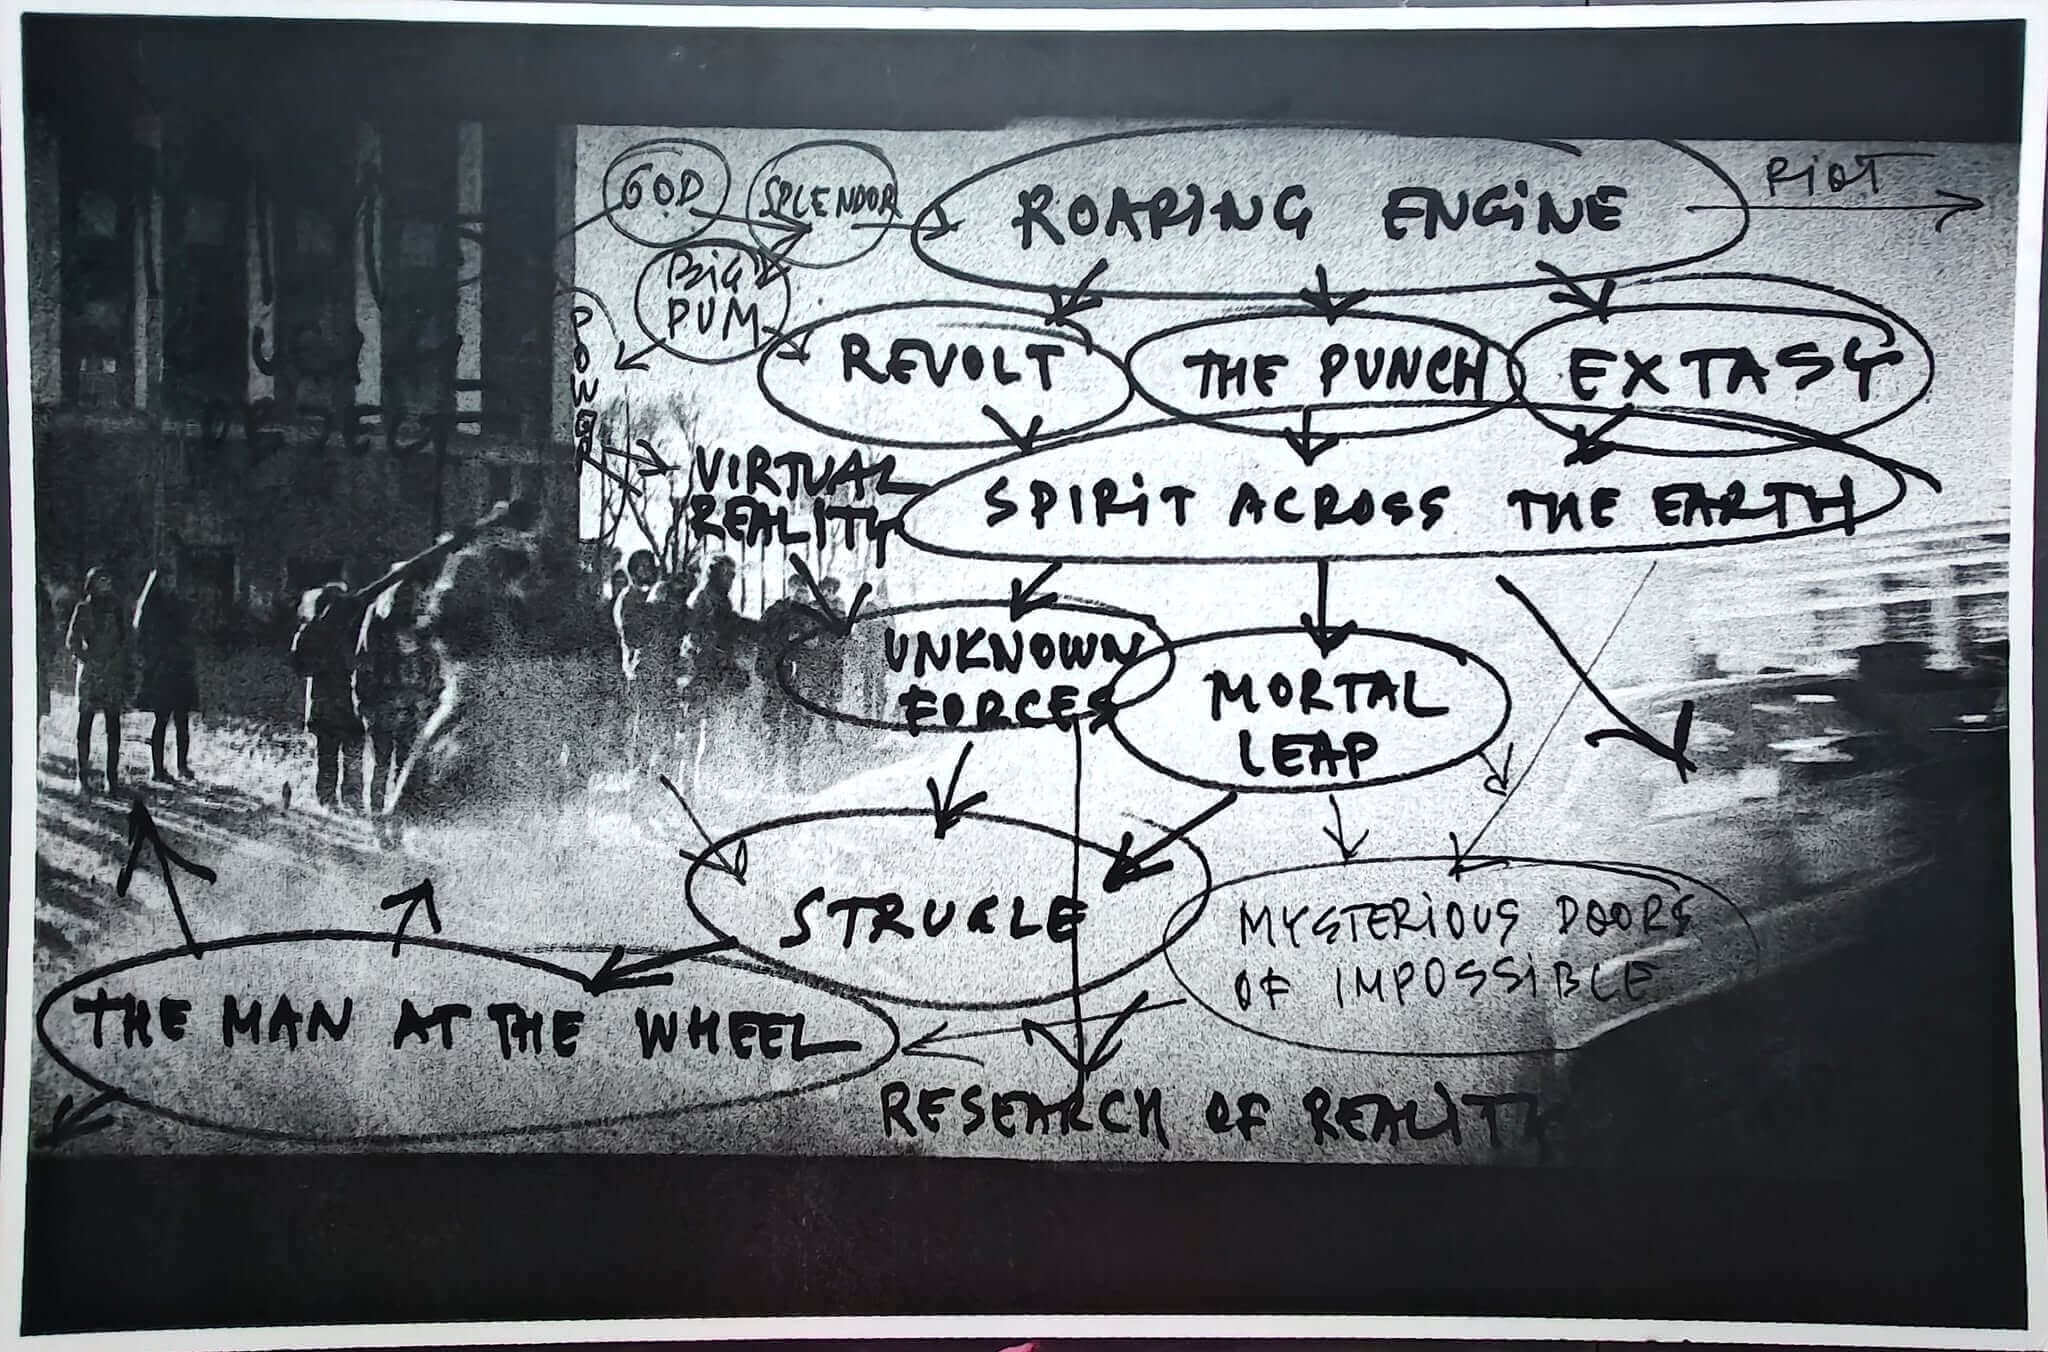 RIOT
GOD
SPLENDOR
ROARING ENGINE
BIG
PUM
POWER
REVOLT
THE PUNCH
EXTASY
VIRTUAL
REALITY
SPIRIT ACROSS THE EARTH
UNKNOWN
FORCES
MORTAL
LEAP
STRUGLE
MYSTERIOUS DOORS
OF IMPOSSIBLE
THE MAN AT THE WHEEL
RESEARCH OF REALITY